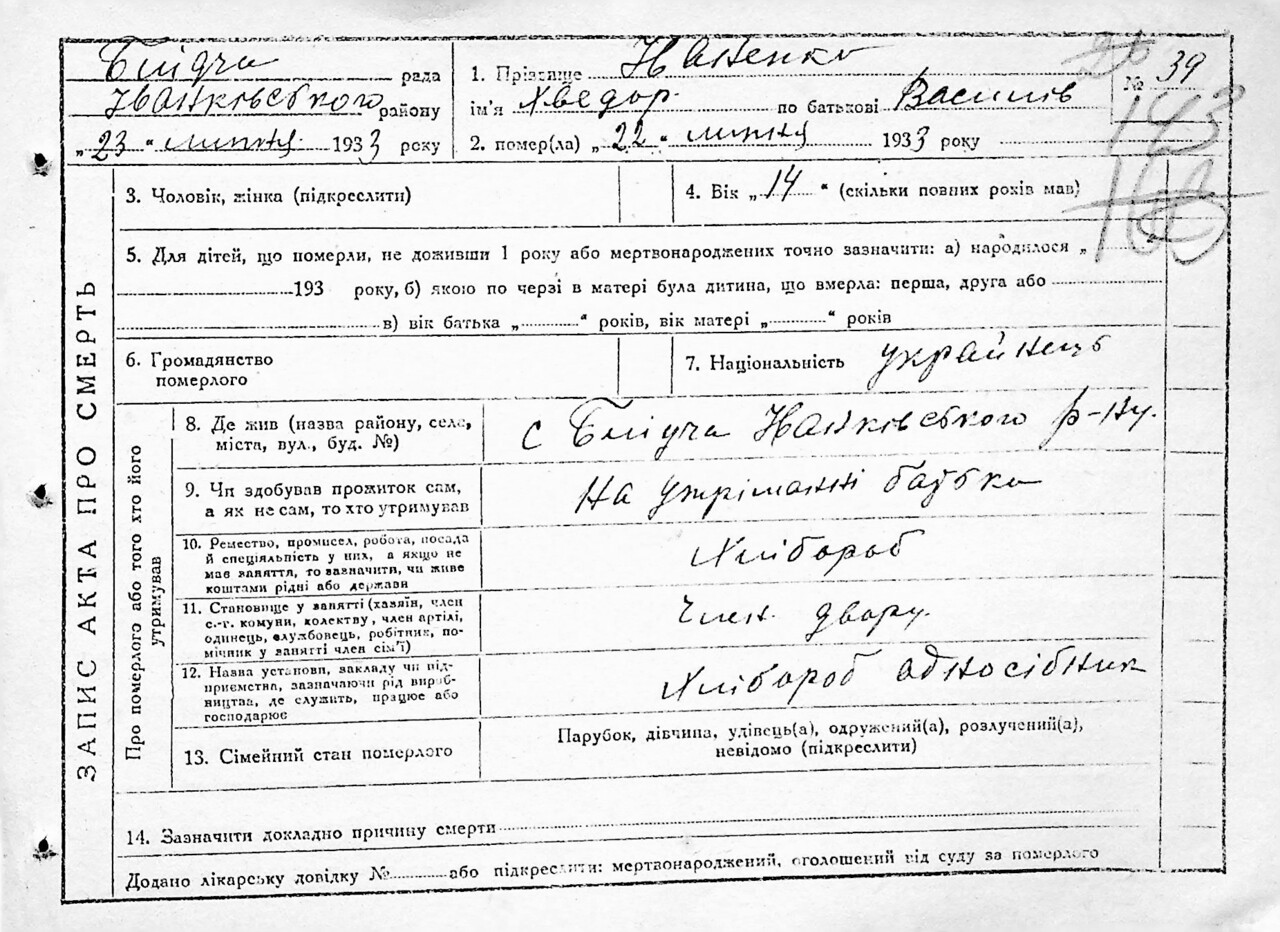 Билдча рада
Іванківського району
„23 “ липня 1933 року
1. Прізвище Іваненко
№ 39
ім'я Хведор. по батькові Василів
143
2. помер(ла) „22 “ липня 1933 року
ЗАПИС АКТА ПРО СМЕРТЬ
3. Чоловік, жінка (підкреслити)
4. Вік „14 “ (скільки повних років мав)
5. Для дітей, що померли, не доживши 1 року або мертвонароджених точно зазначити: а) народилося „
193 року, б) якою по черзі в матері була дитина, що вмерла: перша, друга або
в) вік батька „ “ років, вік матері „ “ років
6. Громадянство
померлого
7. Національність українець
Про померлого або того хто його
утримував
8. Де жив (назва району, села,
міста, вул., буд. №)
с Іванковського р-ну.
9. Чи здобував прожиток сам,
а як не сам, то хто утримував
На утріманні батька
10. Ремество, промисел, робота, посада
й спеціяльність у них, а якщо не
має заняття, то зазначити, чи живе
коштами рідні або держави
Хлібороб
11. Становище у занятті (хазяїн, член
с.-г. комуни, колективу, член артілі,
одинець, службовець, робітник, по-
мічник у занятті член сім'ї)
Член. двору.
12. Назва установи, закладу чи під-
приємства, зазначаючи рід вироб-
ництва, де служить, працює або
господарює
Хлібороб адносібник
13. Сімейний стан померлого
Парубок, дівчина, удівець(а), одружений(а), розлучений(а),
невідомо (підкреслити)
14. Зазначити докладно причину смерти
Додано лікарську довідку № або підкреслити: мертвонароджений, оголошений від суду за померлого